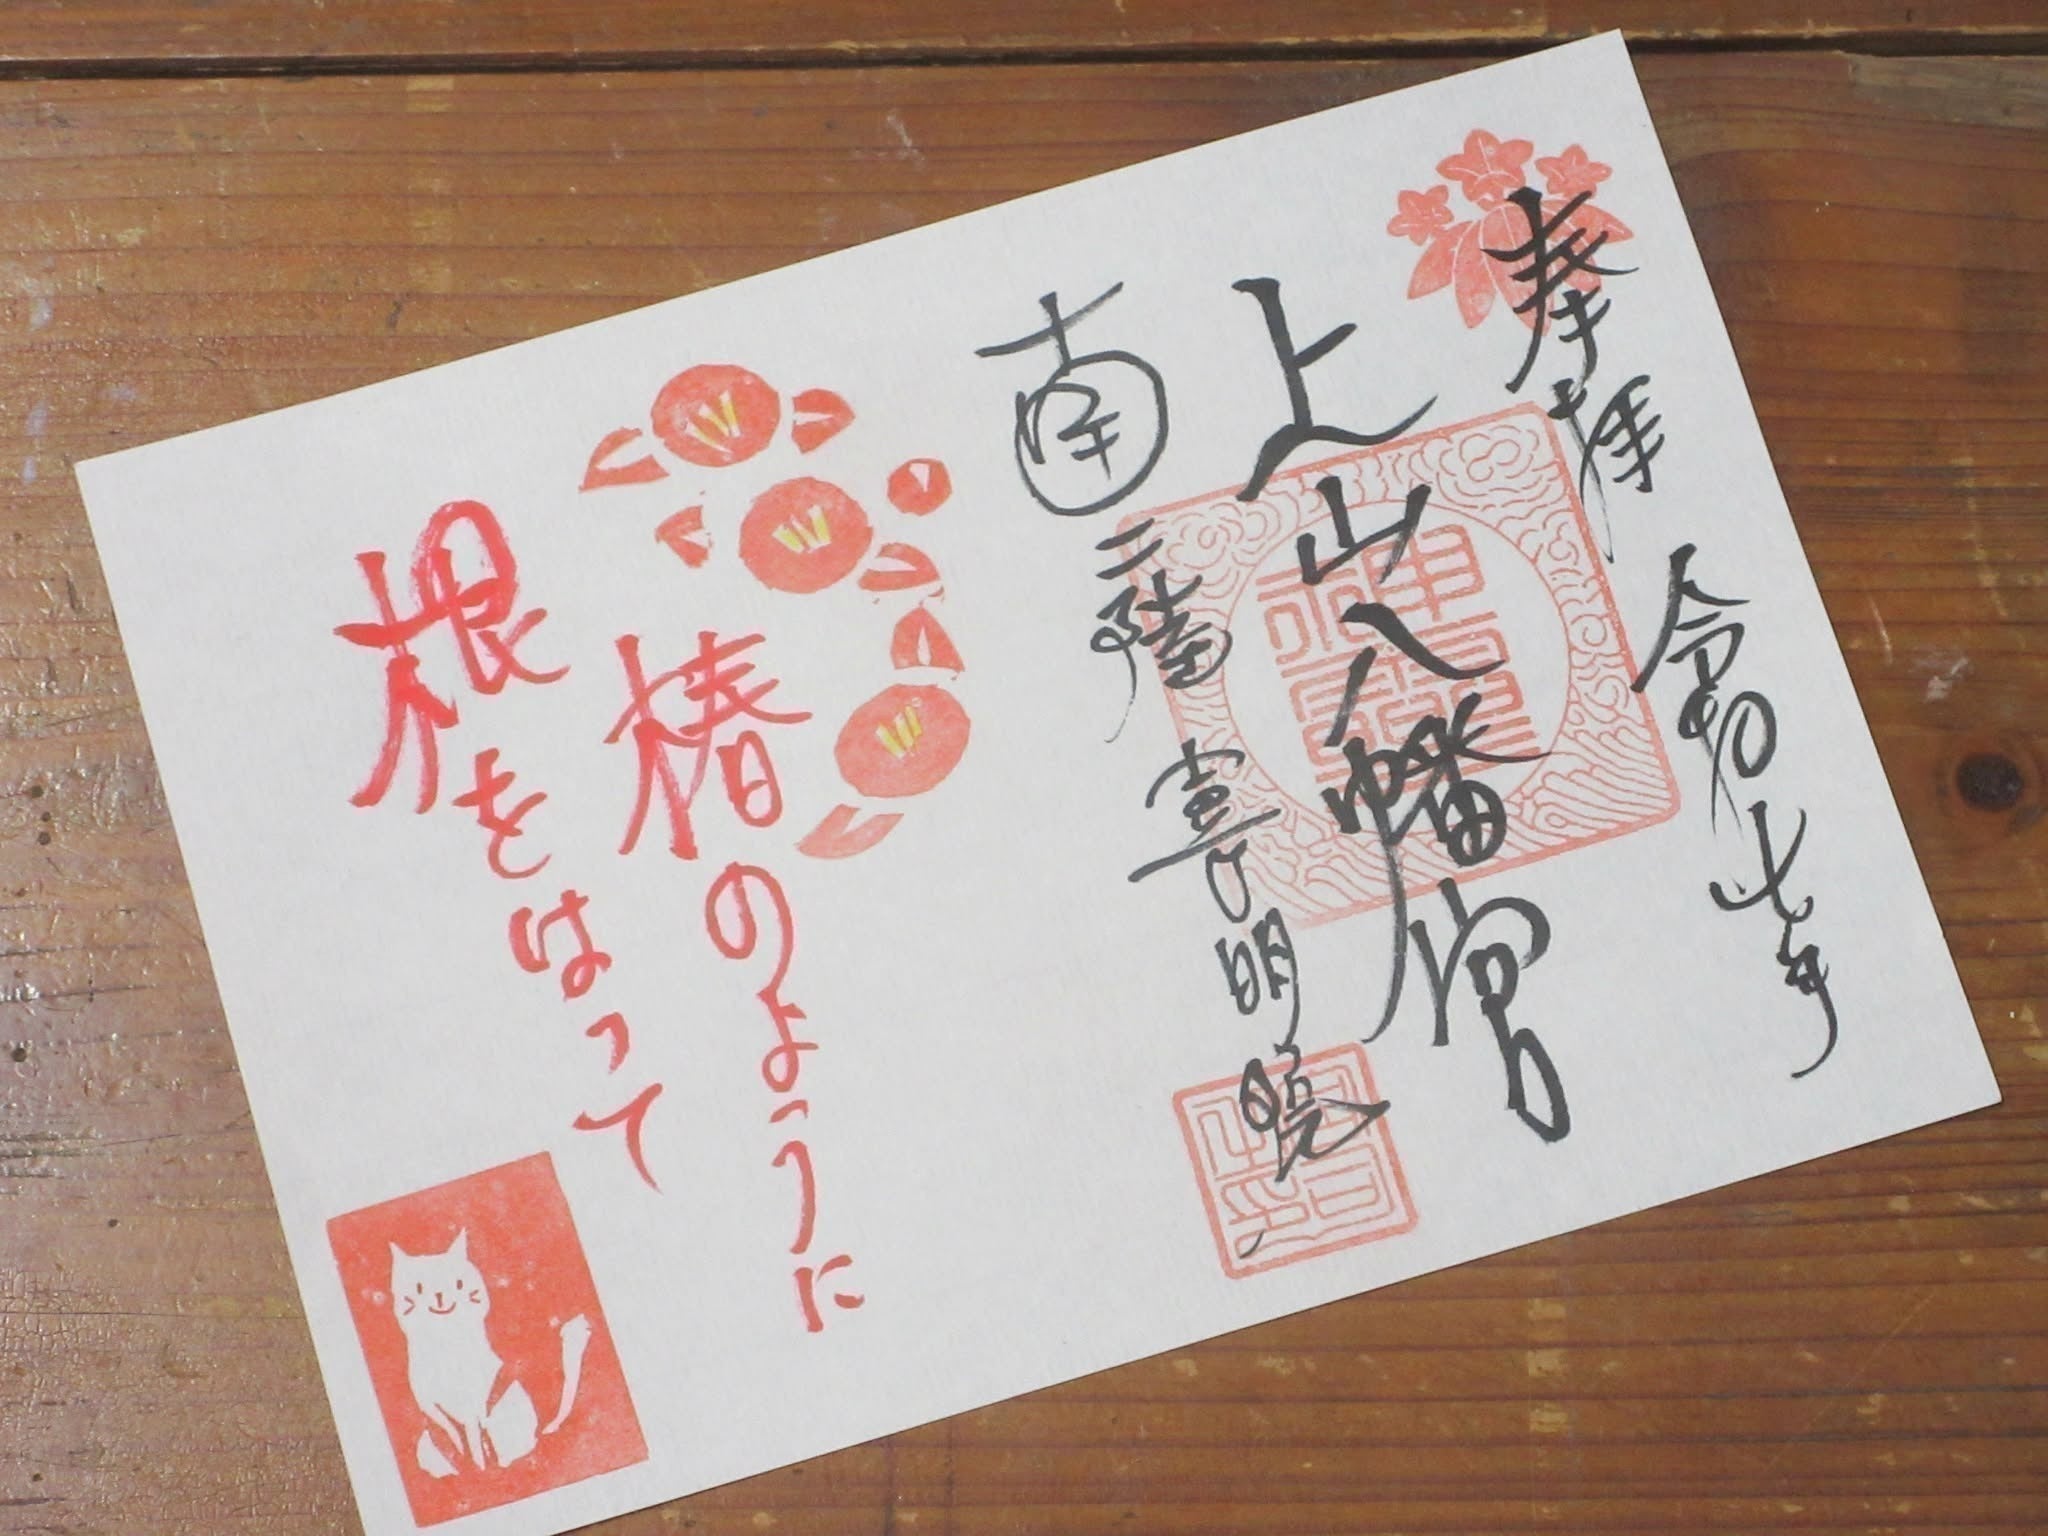 奉拝 令和七年
上山八幡宮
南三陸 明
椿のように
根をはって